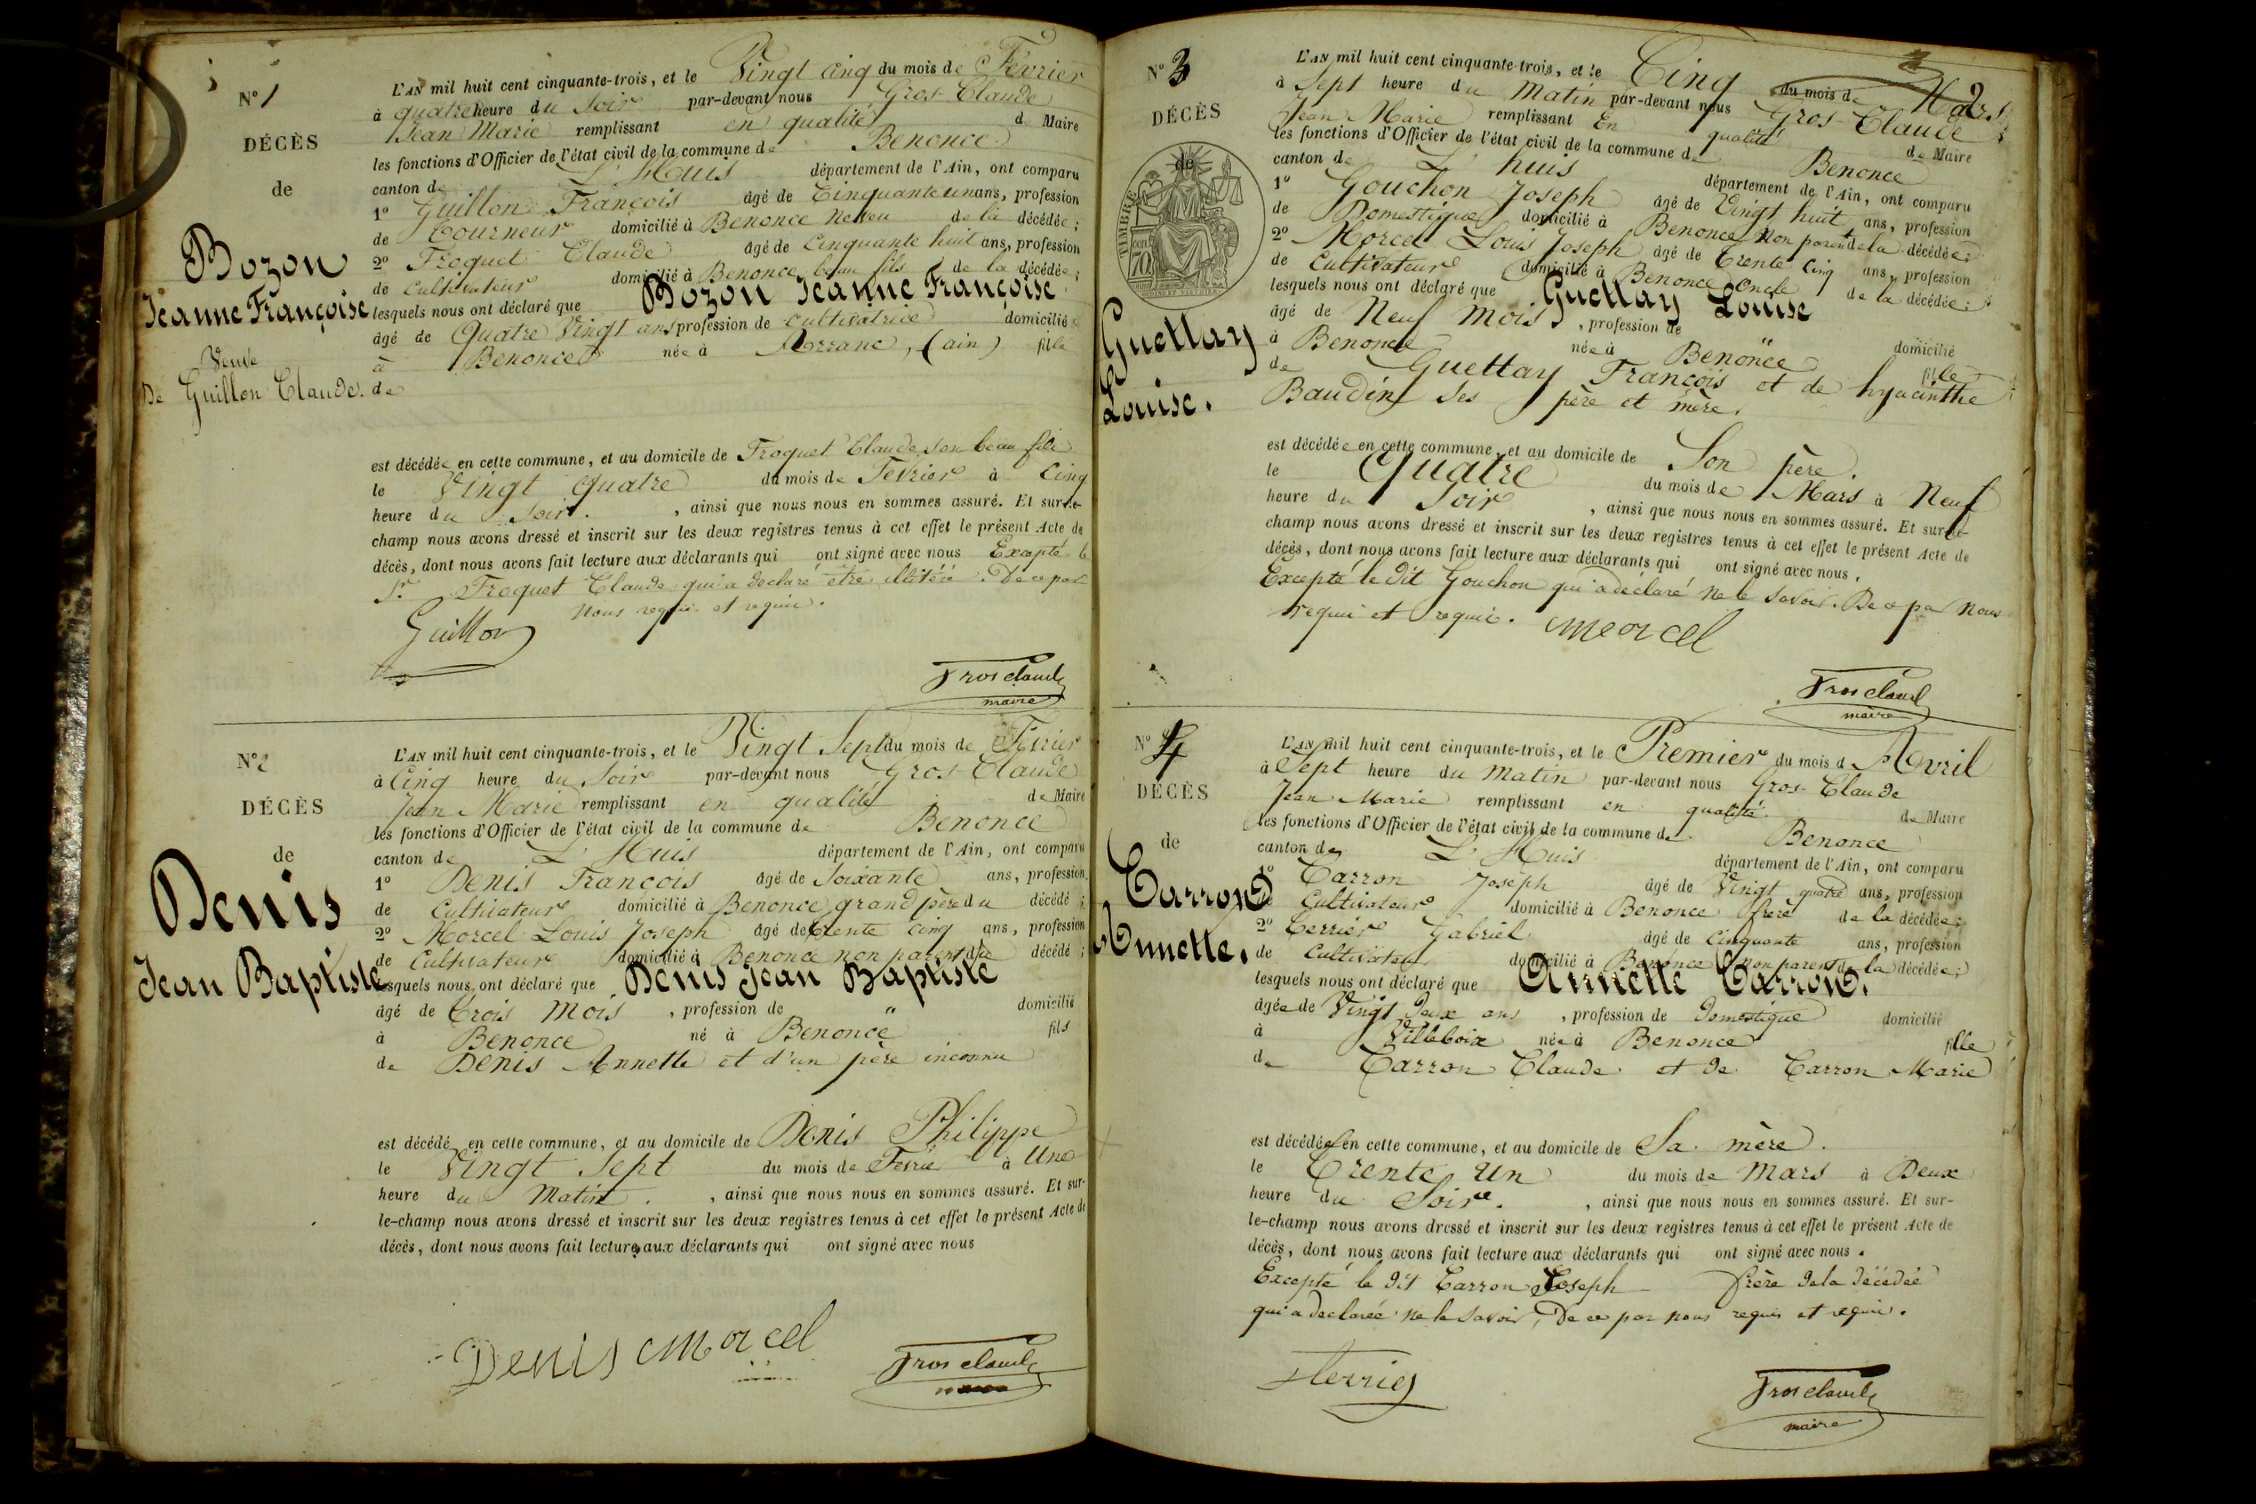 N° 1
DÉCÈS
de
Bozon
Jeanne Françoise
Veuve
De Guillon Claude.
L'AN mil huit cent cinquante-trois, et le Vingt cinq du mois de Février
à quatre heure du Soir par-devant nous Gros-Claude
Jean Marie remplissant en qualité de Maire
les fonctions d'Officier de l'état civil de la commune de Benonce
canton de L'Huis département de l'Ain, ont comparu
1° Guillon François âgé de Cinquante un ans, profession
de Tourneur domicilié à Benonce Neveu de la décédée ;
2° Froquet Claude âgé de Cinquante huit ans, profession
de Cultivateur domicilié à Benonce beau fils de la décédée ;
lesquels nous ont déclaré que Bozon Jeanne Françoise
âgé de Quatre Vingt ans profession de cultivatrice domicilié
à Benonce née à Arranc, (ain) fille
de
est décédée en cette commune, et au domicile de Froquet Claude son beau fils
le Vingt quatre du mois de Fevrier à Cinq
heure du Soir. , ainsi que nous nous en sommes assuré. Et sur-le-
champ nous avons dressé et inscrit sur les deux registres tenus à cet effet le présent Acte de
décès, dont nous avons fait lecture aux déclarants qui ont signé avec nous Excepté le
Sr Froquet Claude qui a declaré être illitéré. De ce par
nous requi et requie.
Guillon
Grosclaude
maire
N° 2
DÉCÈS
de
Denis
Jean Baptiste
L'AN mil huit cent cinquante-trois, et le Vingt Sept du mois de Fevrier
à Cinq heure du Soir par-devant nous Gros-Claude
Jean Marie remplissant en qualité de Maire
les fonctions d'Officier de l'état civil de la commune de Benonce
canton de L'Huis département de l'Ain, ont comparu
1° Denis François âgé de Soixante ans, profession
de Cultivateur domicilié à Benonce grand père du décédé ;
2° Morcel Louis Joseph âgé de trente cinq ans, profession
de Cultivateur domicilié à Benonce non parent du décédé ;
lesquels nous ont déclaré que Denis Jean Baptiste
âgé de Trois Mois , profession de " domicilié
à Benonce né à Benonce fils
de Denis Annette et d'un père inconnu
est décédé en cette commune, et au domicile de Denis Philippe
le Vingt Sept du mois de Fevrie à Une
heure du Matin. , ainsi que nous nous en sommes assuré. Et sur-
le-champ nous avons dressé et inscrit sur les deux registres tenus à cet effet le présent Acte de
décès, dont nous avons fait lecture aux déclarants qui ont signé avec nous
Denis Morcel
Grosclaude
maire
2
N° 3
DÉCÈS
de
TIMBRE
70
Guettay
Louise.
L'AN mil huit cent cinquante-trois, et le Cinq du mois de Mars
à Sept heure du Matin par-devant nous Gros-Claude
Jean Marie remplissant En qualité de Maire
les fonctions d'Officier de l'état civil de la commune de Benonce
canton de L'huis département de l'Ain, ont comparu
1° Gouchon Joseph âgé de Vingt huit ans, profession
de Domestique domicilié à Benonce Non parent de la décédée ;
2° Morcel Louis Joseph âgé de Trente Cinq ans, profession
de Cultivateur domicilié à Benonce Oncle de la décédée ;
lesquels nous ont déclaré que Guettay Louise
âgé de Neuf Mois , profession de domicilié
à Benonce née à Benonce fille
de Guettay François et de hyacinthe
Baudin Ses père et mère.
est décédée en cette commune, et au domicile de Son père.
le Quatre du mois de Mars à Neuf
heure du Soir , ainsi que nous nous en sommes assuré. Et sur-le-
champ nous avons dressé et inscrit sur les deux registres tenus à cet effet le présent Acte de
décès, dont nous avons fait lecture aux déclarants qui ont signé avec nous.
Excepté le dit Gouchon qui a déclaré Ne le Savoir. De ce par Nous
requi et requi.
Morcel
Grosclaude
maire
N° 4
DÉCÈS
de
Carron
Annette.
L'AN mil huit cent cinquante-trois, et le Premier du mois d Avril
à Sept heure du Matin par-devant nous Gros-Claude
Jean Marie remplissant en qualité de Maire
les fonctions d'Officier de l'état civil de la commune de Benonce
canton de L'Huis département de l'Ain, ont comparu
1° Carron Joseph âgé de Vingt quatre ans, profession
de Cultivateur domicilié à Benonce frère de la décédée ;
2° Terrier Gabriel âgé de Cinquante ans, profession
de Cultivateur domicilié à Benonce Non parent de la décédée ;
lesquels nous ont déclaré que Annette Carron.
âgée de Vingt Deux ans , profession de Domestique domicilié
à Villeboix née à Benonce fille
de Carron Claude et de Carron Marie
est décédée en cette commune, et au domicile de Sa mère.
le Trente Un du mois de Mars à Deux
heure du Soir. , ainsi que nous nous en sommes assuré. Et sur-
le-champ nous avons dressé et inscrit sur les deux registres tenus à cet effet le présent Acte de
décès, dont nous avons fait lecture aux déclarants qui ont signé avec nous.
Excepté le dit Carron Joseph frère de la décédée
qui a declarée ne le Savoir, De ce par nous requis et requie.
Terrier
Grosclaude
maire